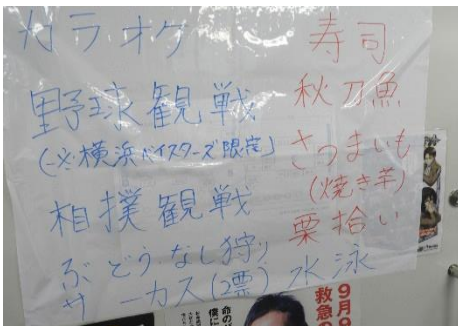 カラオケ
野球観戦
(※横浜ベイスターズ限定)
相撲観戦
ぶどうなし狩り
サーカス(2票)
寿司
秋刀魚
さつまいも
(焼き芋)
栗拾い
水泳
9月9
救急の
命の
僕に